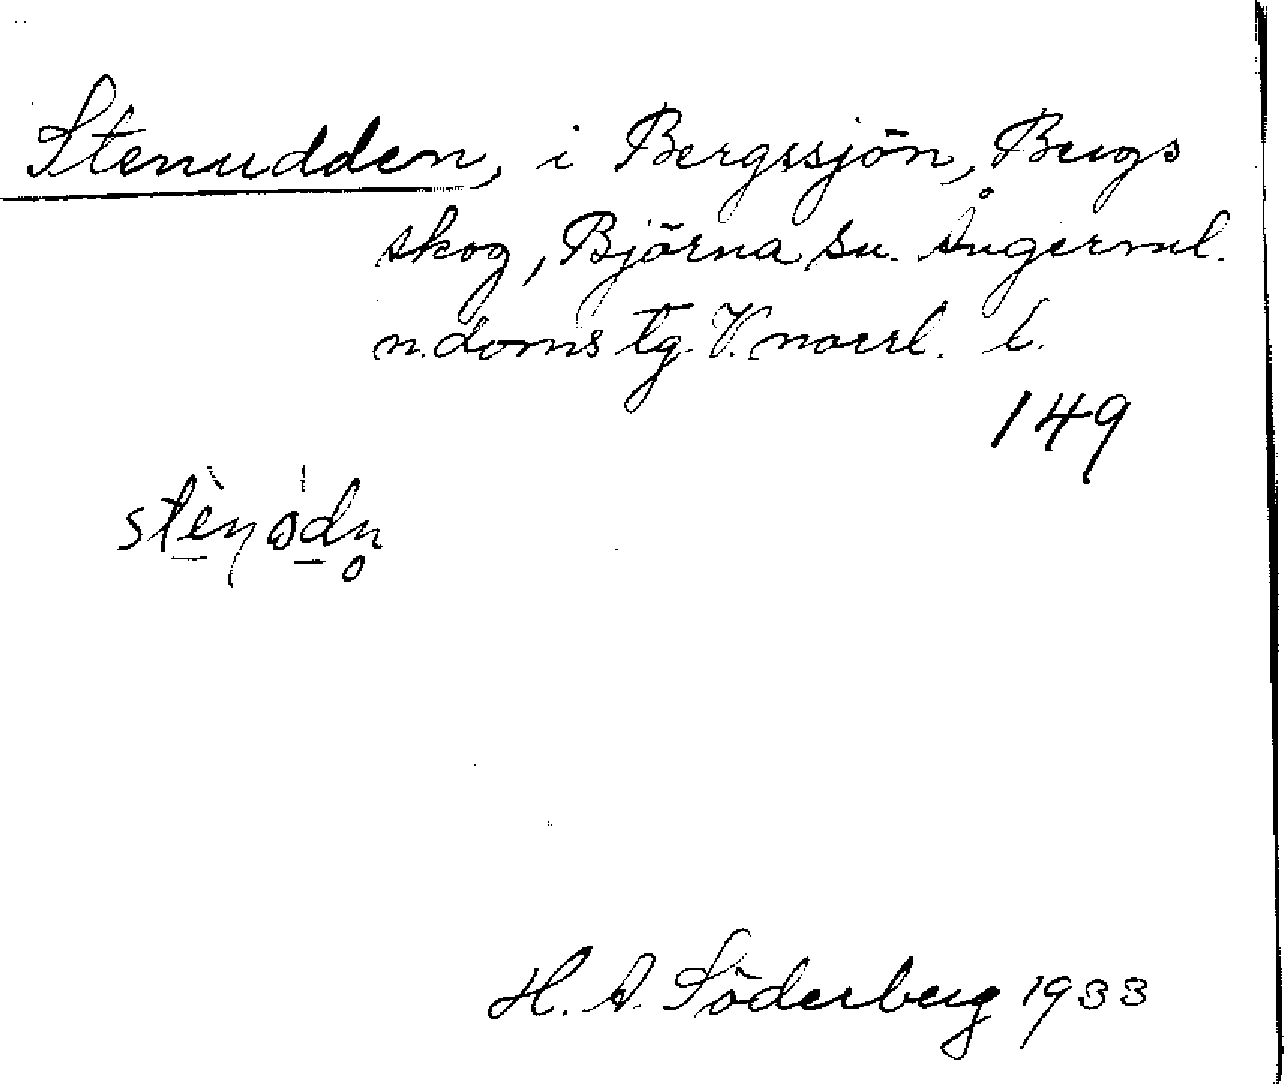 Stenudden, i Bergssjön, Bergs
skog, Björna sn. Ångerml.
n. doms tg. V. norrl. l.
149
H. A. Söderberg 1933